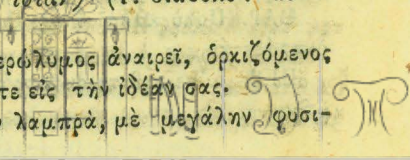 ερώλυμος ἀναιρεῖ, ὁρκιζόμενος
τε εἰς τὴν ἰδέαν σας.
λαμπρὰ, μὲ μεγάλην φυσι-